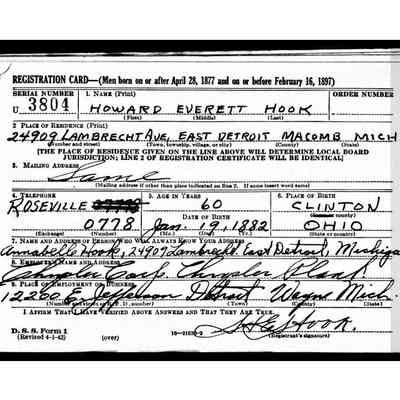 REGISTRATION CARD—(Men born on or after April 28, 1877 and on or before February 16, 1897)
SERIAL NUMBER 1. NAME (Print) ORDER NUMBER
U 3804 HOWARD EVERETT HOOK
(First) (Middle) (Last)
2. PLACE OF RESIDENCE (Print)
24909 LAMBRECHT AVE, EAST DETROIT MACOMB MICH
(Number and street) (Town, township, village, or city) (County) (State)
[THE PLACE OF RESIDENCE GIVEN ON THE LINE ABOVE WILL DETERMINE LOCAL BOARD
JURISDICTION; LINE 2 OF REGISTRATION CERTIFICATE WILL BE IDENTICAL]
3. MAILING ADDRESS
Same
[Mailing address if other than place indicated on line 2. If same insert word same]
4. TELEPHONE 5. AGE IN YEARS 6. PLACE OF BIRTH
ROSEVILLE 60 CLINTON
DATE OF BIRTH county
0778 Jan. 19, 1882 OHIO
(Exchange) (Number) (Mo.) (Day) (Yr.) (State or country)
7. NAME AND ADDRESS OF PERSON WHO WILL ALWAYS KNOW YOUR ADDRESS
Annabelle Hook, 24909 Lambrecht East Detroit, Michiga
8. EMPLOYER'S NAME AND ADDRESS
Chrysler Corp. Chrysler Plant
9. PLACE OF EMPLOYMENT OR BUSINESS
12200 E. Jefferson Detroit Wayne Mich.
(Number and street or R. F. D. number) (Town) (County) (State)
I AFFIRM THAT I HAVE VERIFIED ABOVE ANSWERS AND THAT THEY ARE TRUE.
D. S. S. Form 1
(Revised 4-1-42) (over) Hook.
(Registrant's signature)